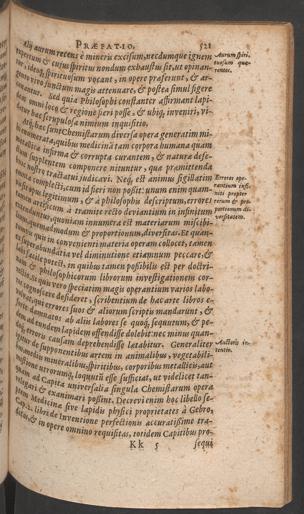 PRÆFATIO. 521
Alij aurum recens è mineris excisum, necdumque ignem
expertum & cujus spiritus nondum exhaustus sit, ut opinan-
tur, ideoque spirituosum vocant, in opere præferunt, & ar-
Sed quia Philosophi constanter affirmant lapi-
omni loco & regione fieri posse, & ubique inveniri, vi-
hæc scrupulosa nimium inquisitio.
Chemistarum diversa opera generatim mi-
quibus medicinã tam corpora humana quàm
metallica infirma & corrupta curantem, & naturæ defe-
ctum supplentem componere nituntur, quæ præmittenda
nostro tractatui judicavi. Neque est animus sigillatim
complecti, cum id fieri non possit: unum enim quam-
legitimum, & à philosophis descriptum, errores
artificum à tramite recto deviantium in infinitum
quoniam innumera est materiarum miscibi-
quomodum & proportionum, diversitas. Et quan-
qui in convenienti materia operam collocet, tamen
vel diminutione etiamnum peccare, &
facile poterit, in quibus tamen possibilis est per doctri-
& philosophicorum librorum investigationem cor-
quis vero speciatim magis operantium varios labo-
desideret, scribentium de hac arte libros e-
qui errores suos & aliorum scriptis mandarunt, &
damnatos ab aliis labores se quoque sequutum, & pe-
dem ad eundem lapidem offendisse dolebit: nec minus quan-
doque erroris causam deprehendisse lætabitur. Generaliter
de supponentibus artem in animalibus, vegetabili-
mineralibus, spiritibus, corporibus metallicis, aut
errorum, loquuti esse sufficiat, ut videlicet tan-
quam ad Capita universalia singula Chemistarum opera
& examinari possint. Decrevi enim hoc libello se-
ptem Medicinæ sive lapidis physici proprietates à Gebro,
libri de inventione perfectionis accuratissime tra-
ditas, & in opere omnino requisitas, totidem Capitibus pro-
Kk 5 sequi
Aurum spiri-
tuosum quæ-
rentes.
Errores ope-
rantium infi-
niti propter
rerum & pro-
portionum di-
versitatem.
Auctoris in-
tentio.